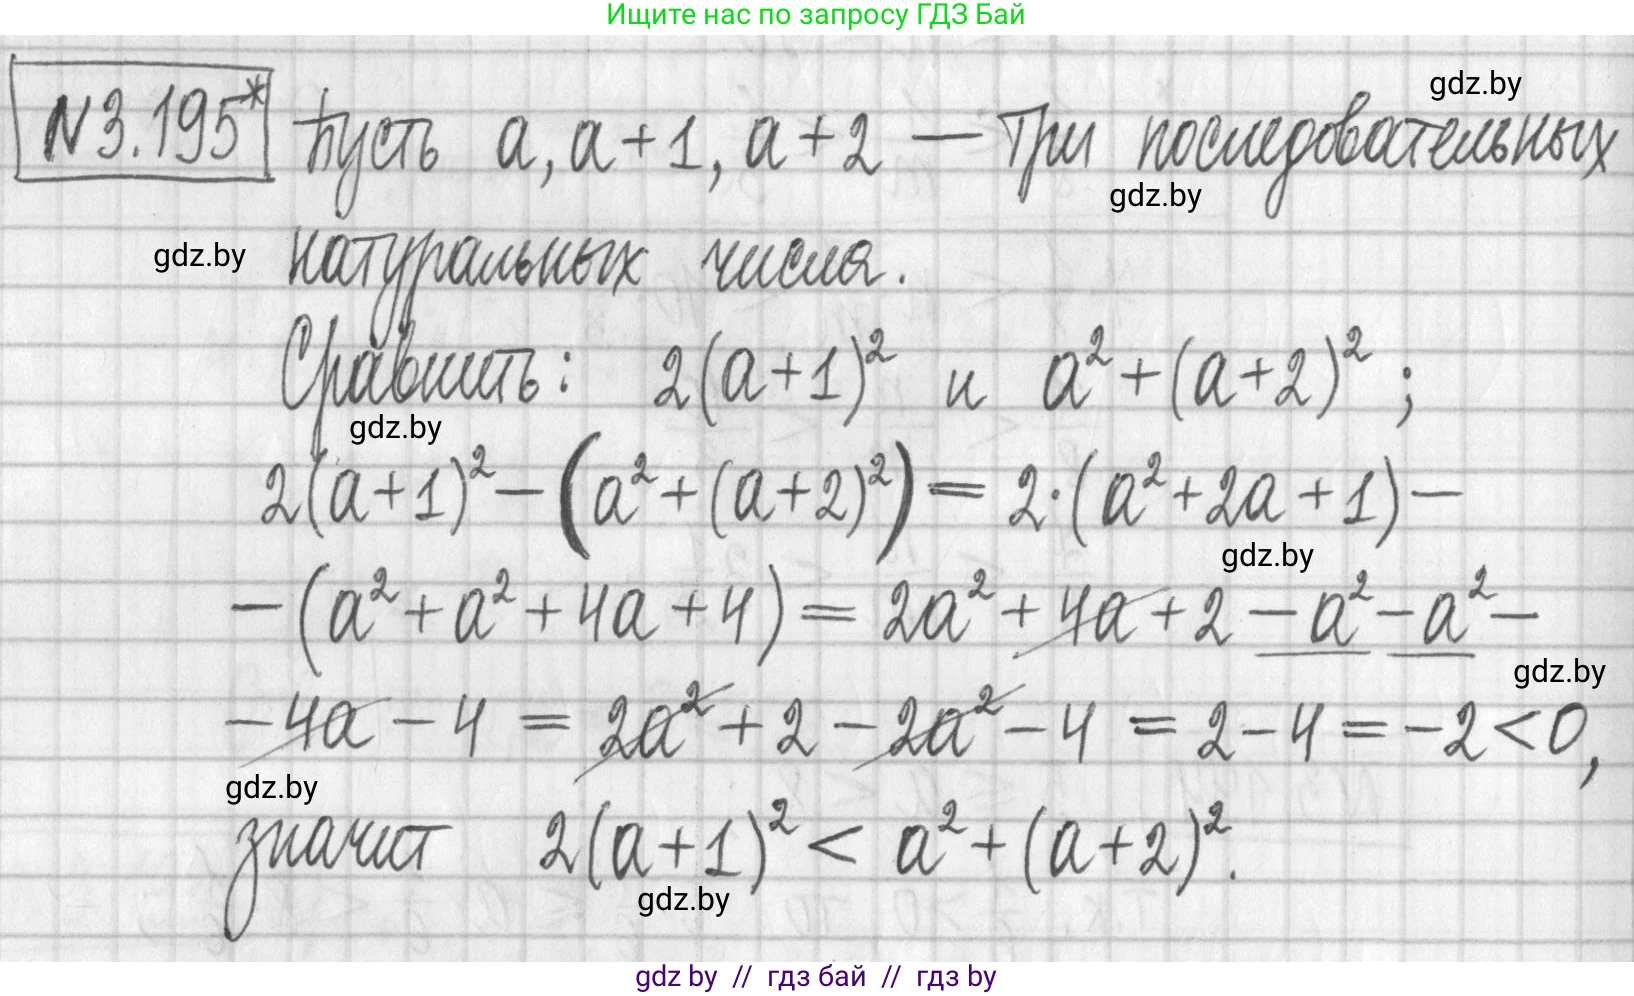 Ищите нас по запросу ГДЗ Бай
gdz.by
N3.195* Пусть a, a+1, a+2 — три последовательных
gdz.by
gdz.by натуральных числа.
Сравнить: 2(a+1)² и a²+(a+2)² ;
gdz.by
2(a+1)²−(a²+(a+2)²)=2·(a²+2a+1)−
gdz.by
−(a²+a²+4a+4)=2a²+4a+2−a²−a²−
gdz.by
−4a−4=2a²+2−2a²−4=2−4=−2<0,
gdz.by
значит 2(a+1)²< a²+(a+2)².
gdz.by
gdz by // гдз бай // гдз by